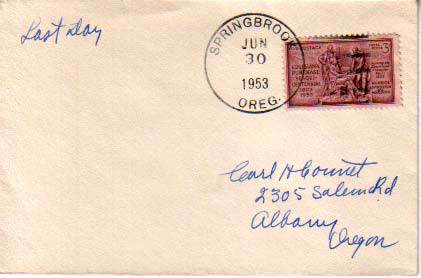 Last Day
SPRINGBROOK
JUN
30
1953
OREG.
POSTAGE
3
LOUISIANA
PURCHASE
SESQUI-
CENTENNIAL
1803
1953
Carl H
2305 Salem Rd
Albany
Oregon